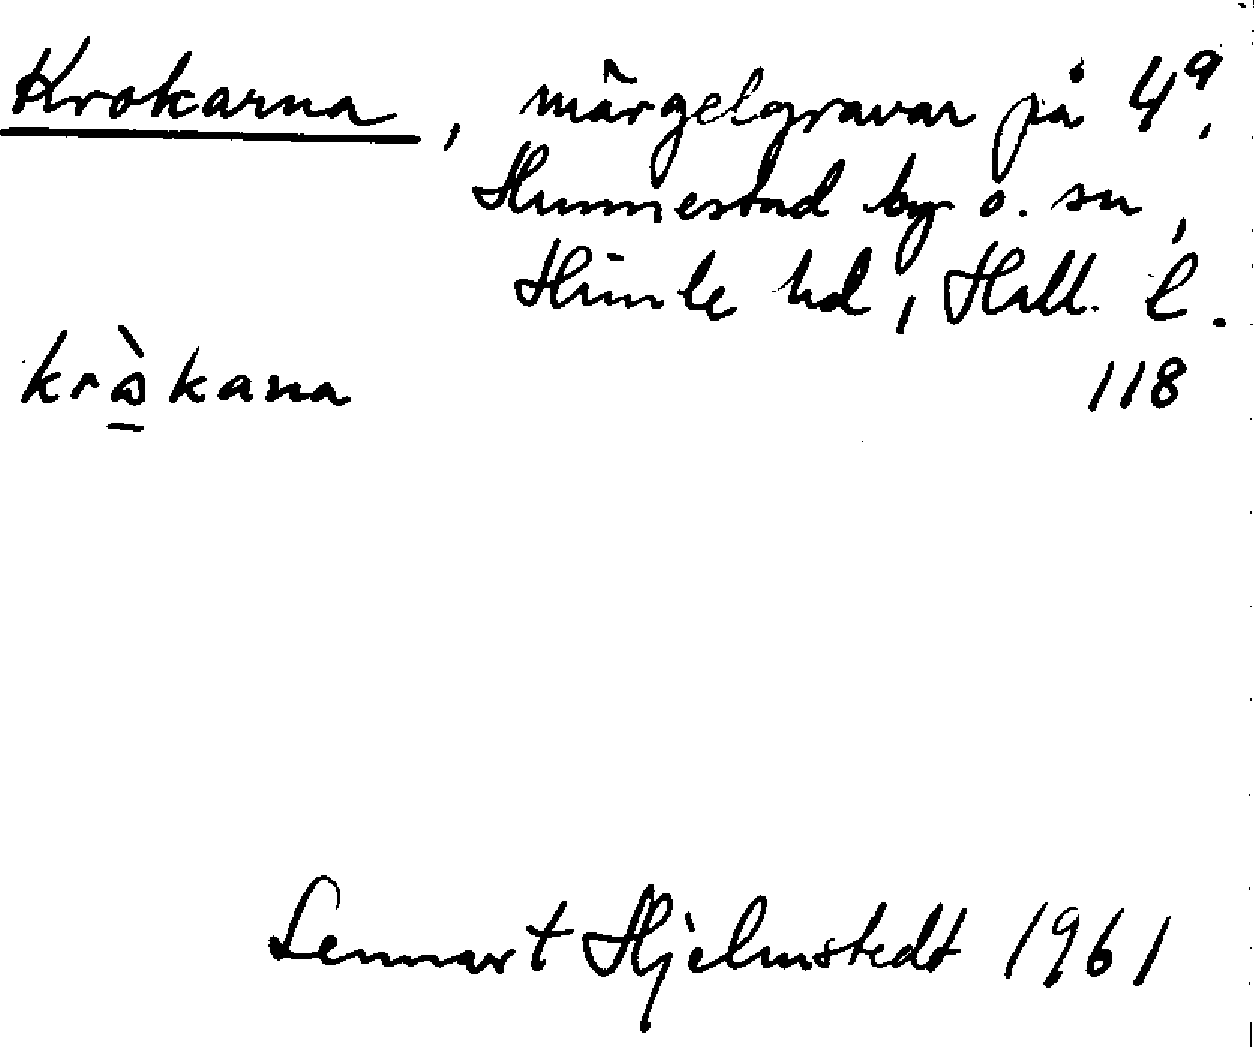 Krokarna, märgelgravar på 4⁹,
Hunnestad by o. sn,
Himle hd, Hall. l.
118
kràkana
Lennart Hjelmstedt 1961